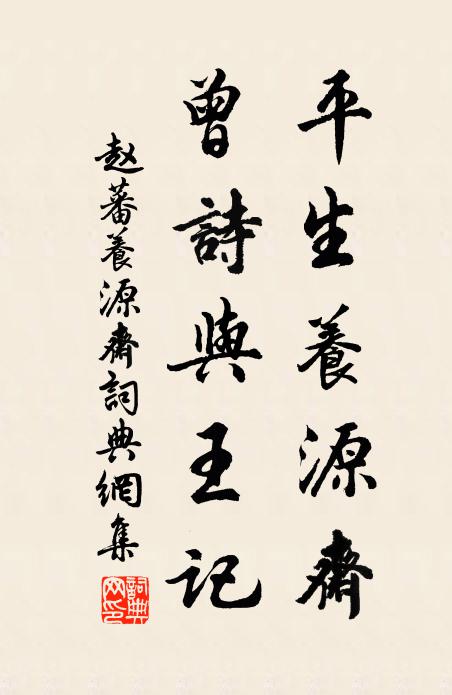 平生養源齋
曾詩與王記
赵蕃養源齋詞典網集
詞典網印